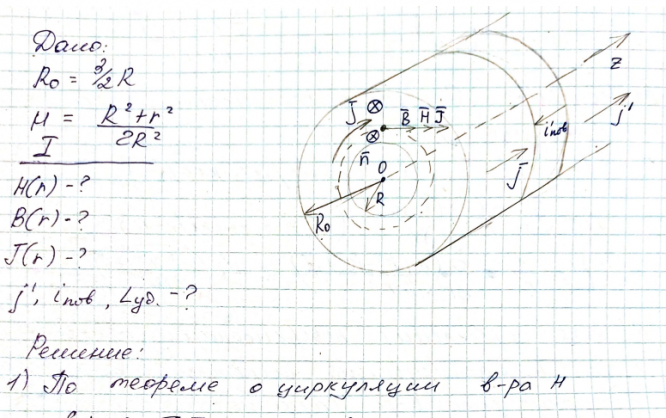 Дано:
R₀ = 3/2 R
μ = R² + r² / 2R²
I
H(r) - ?
B(r) - ?
J(r) - ?
j', iпов, Lуд. - ?
J
B̄ H̄ J̄
n̄
O
R
R₀
z
j'
iпов
j̄
Решение:
1) По теореме о циркуляции в-ра H